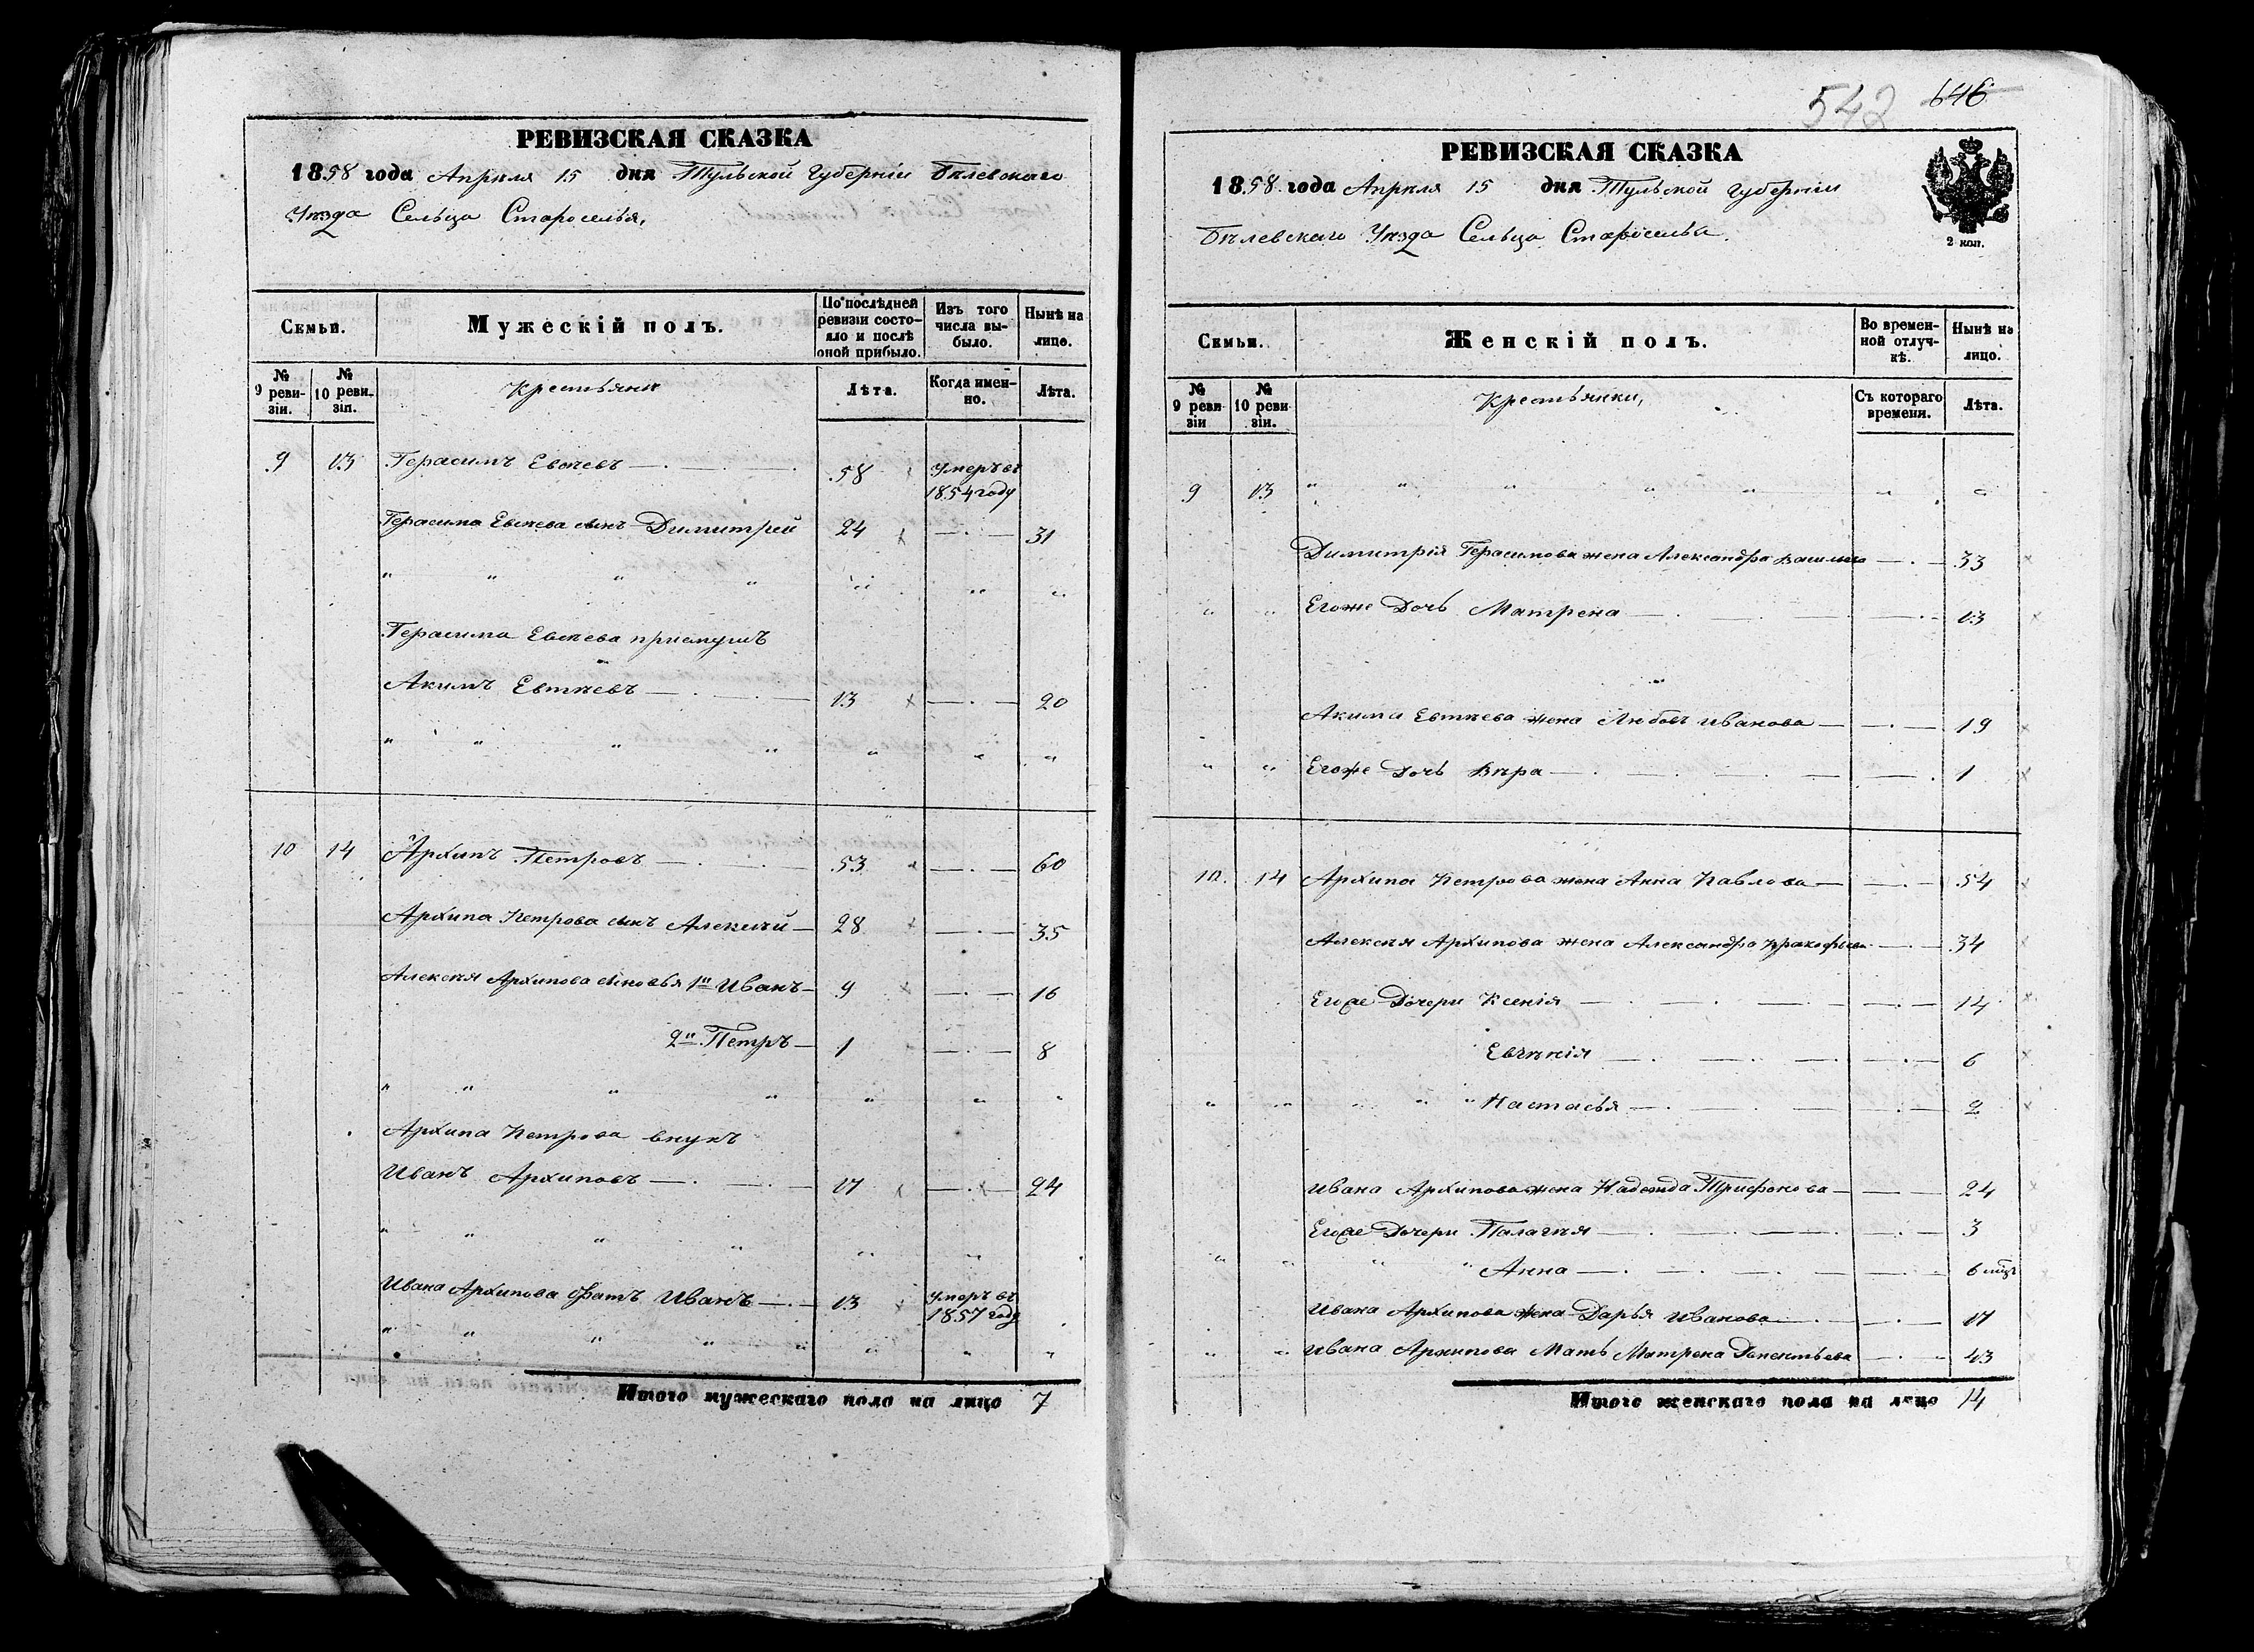 РЕВИЗСКАЯ СКАЗКА
1858 года Апрѣля 15 дня Тульской Губерніи Бѣлевскаго
Уѣзда Сельца Староселья,
Семьи.
Мужескій полъ.
По послѣдней ревизіи состояло и послѣ оной прибыло.
Изъ того числа выбыло.
Нынѣ на лицо.
№ 9 ревизіи.
№ 10 ревизіи.
Крестьяне
Лѣта.
Когда именно.
Лѣта.
9 13 Герасимъ Евсѣевъ 58 умеръ въ
1854 году
Герасима Евсѣева сынъ Димитрей 24 31
" " " " " " "
Герасима Евсѣева приемушъ
Акимъ Евтѣевъ 13 20
" " " " " " "
10 14 Архипъ Петровъ 53 60
Архипа Петрова сынъ Алексѣй 28 35
Алексѣя Архипова сыновья 1й Иванъ 9 16
2й Петръ 1 8
" " " " " " "
Архипа Петрова внукъ
Иванъ Архиповъ 17 24
" " " " " "
Ивана Архипова братъ Иванъ 13 умеръ въ
1857 году
" " " " " " " "
Итого мужескаго пола на лицо 7
542 646
РЕВИЗСКАЯ СКАЗКА
1858 года Апрѣля 15 дня Тульской Губерніи
Бѣлевскаго Уѣзда Сельца Староселья.
2 коп.
Семьи.
Женскій полъ.
Во временной отлучкѣ.
Нынѣ на лицо.
№ 9 ревизіи
№ 10 ревизіи.
Крестьянки,
Съ котораго времени.
Лѣта.
9 13 " " " " " " "
Димитрія Герасимова жена Александра 33
" " Егоже Дочь Матрена 13
Акима Евтѣева жена Любовь Иванова 19
" " Егоже Дочь Вѣра 1
10. 14 Архипа Петрова жена Анна Павлова 54
Алексѣя Архипова жена Александра 34
Егоже Дочери Ксенія 14
Евгѣнія 6
" " " " " Настасья 2
Ивана Архипова жена Надежда Трифонова 24
Егоже Дочери Палагѣя 3
" " " " Анна 6 мѣц
Ивана Архипова жена Дарья Иванова 17
" " Ивана Архипова Мать Матрена 43
Итого женскаго пола на лицо 14